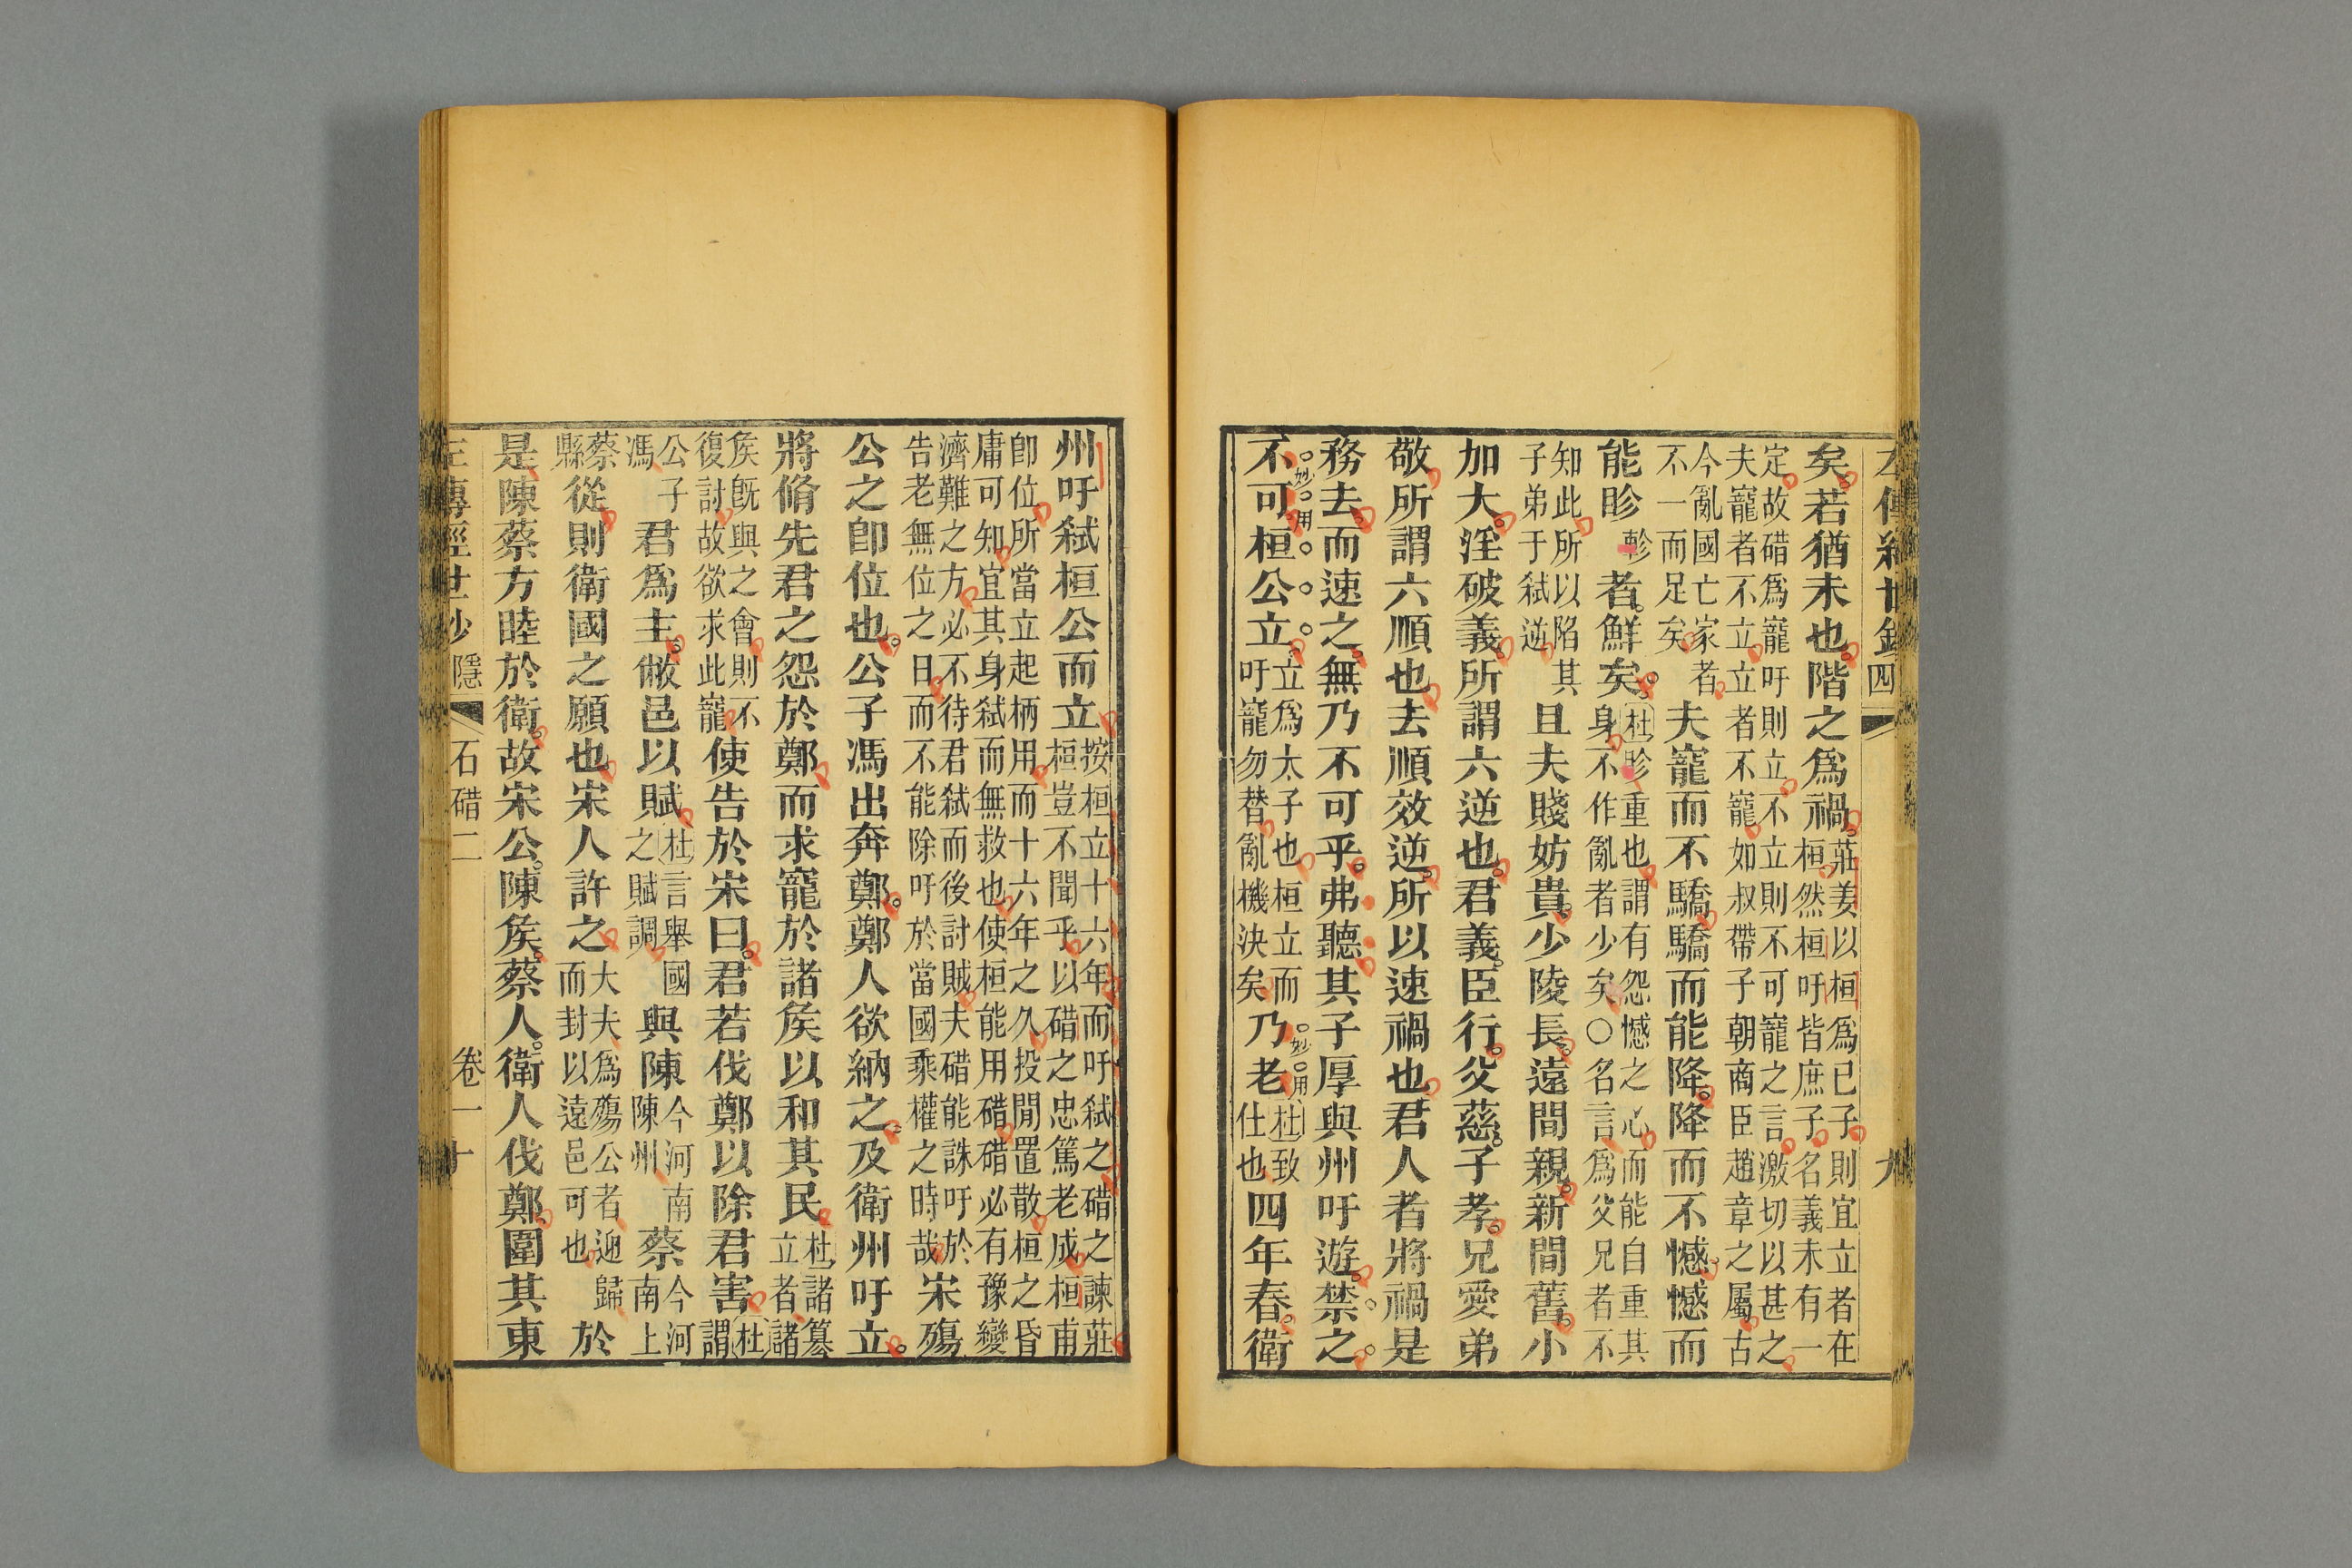 左傳經世鈔 四 九
矣。若猶未也。階之爲禍。莊姜以桓爲已子則宜立者在桓然桓吁皆庶子名義未有一
定故碏爲寵吁則立不立則不可寵之言激切以甚之夫寵者不立立者不寵如叔帶子朝商臣趙章之屬古
今亂國亡家者不一而足矣夫寵而不驕驕而能降。降而不憾憾而
能眕軫者。鮮矣。杜眕重也謂有怨憾之心而能自重其身不作亂者少矣○名言爲父兄者不
知此所以陷其子弟于弑逆且夫賤妨貴。少陵長。遠間親。新間舊。小
加大。淫破義。所謂六逆也。君義。臣行。父慈。子孝。兄愛弟
敬。所謂六順也去順效逆。所以速禍也君人者將禍是
務去而速之。無乃不可乎。弗聽其子厚與州吁遊。禁之。
妙用
不可桓公立。立爲太子也桓立而吁寵勿替亂機決矣乃老杜致仕也四年春。衛
妙用
州吁弑桓公而立按桓立十六年而吁弑之碏之諫莊桓豈不聞乎以碏之忠篤老成桓甫
卽位所當立起柄用而十六年之久投閒置散桓之昏庸可知宜其身弑而無救也使桓能用碏碏必有豫變
濟難之方必不待君弑而後討賊夫碏能誅吁於告老無位之日而不能除吁於當國乘權之時哉宋殤
公之卽位也。公子馮出奔鄭。鄭人欲納之。及衛州吁立。
將脩先君之怨於鄭而求寵於諸侯以和其民杜諸篡立者諸
侯旣與之會則不復討故欲求此寵使告於宋曰。君若伐鄭以除君害杜謂
公子馮君爲主。敝邑以賦杜言舉國之賦調與陳今河南陳州蔡今河南上
蔡縣從則衛國之願也宋人許之大夫爲殤公者迎歸而封以遠邑可也於
是陳蔡方睦於衛。故宋公。陳侯。蔡人。衛人伐鄭圍其東
左傳經世鈔 隱 石碏二 卷一 十